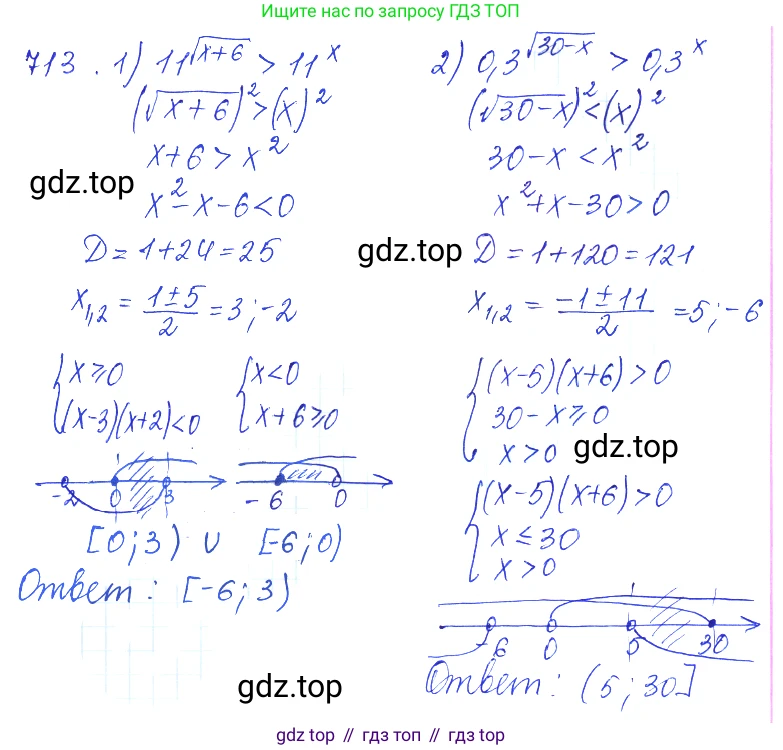 Ищите нас по запросу ГДЗ ТОП
713. 1) 11^√(x+6) > 11^x
(√(x+6))² > (x)²
x+6 > x²
x² - x - 6 < 0
D = 1 + 24 = 25
x₁,₂ = (1 ± 5)/2 = 3; -2
{ x ≥ 0
(x-3)(x+2) < 0
{ x < 0
x + 6 ≥ 0
-2 0 3
-6 0
[0; 3) ∪ [-6; 0)
Ответ: [-6; 3)
2) 0,3^√(30-x) > 0,3^x
(√(30-x))² < (x)²
30 - x < x²
x² + x - 30 > 0
D = 1 + 120 = 121
x₁,₂ = (-1 ± 11)/2 = 5; -6
{ (x-5)(x+6) > 0
30 - x ≥ 0
x > 0
{ (x-5)(x+6) > 0
x ≤ 30
x > 0
-6 0 5 30
Ответ: (5; 30]
gdz.top
gdz.top
gdz.top
gdz.top
gdz top // гдз топ // gdz top